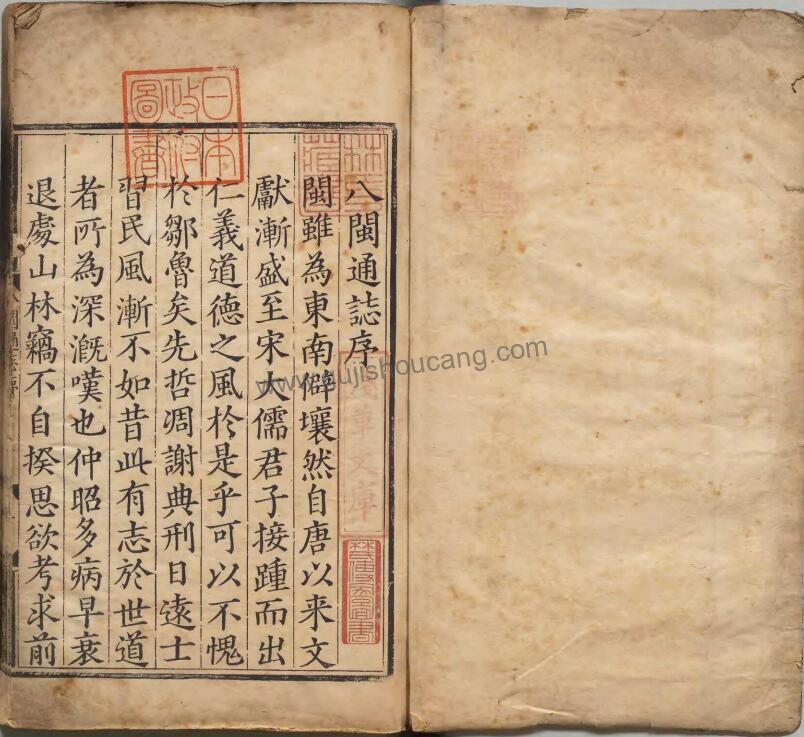 八閩通誌序
閩雖為東南僻壤然自唐以来文
獻漸盛至宋大儒君子接踵而出
仁義道德之風於是乎可以不愧
於鄒魯矣先哲凋謝典刑日遠士
習民風漸不如昔此有志於世道
者所為深漑嘆也仲昭多病早衰
退處山林竊不自揆思欲考求前
日本政府圖書
林氏藏書
淺草文庫
www.gujishoucang.com